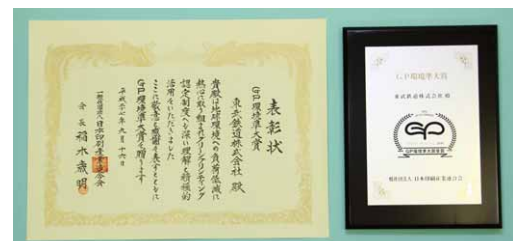 表彰状
GP環境準大賞
東武鉄道株式会社 殿
貴殿は地球環境への負荷低減に
熱心に取り組まれグリーンプリンティング
認定制度への深い理解と積極的
活用をいただきました
ここに敬意と感謝を表すとともに
GP環境準大賞を贈ります
平成二十七年九月十六日
一般社団法人日本印刷産業連合会
会長 稲木歳明
GP環境準大賞
東武鉄道株式会社 様
GP
GP環境準大賞受賞
一般社団法人 日本印刷産業連合会